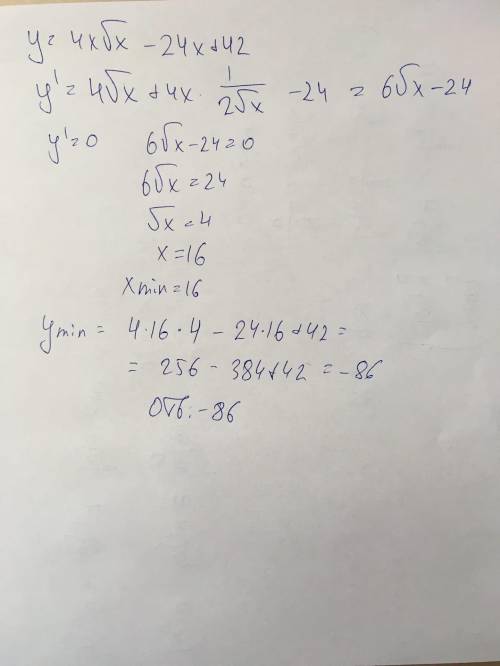 y = 4x√x - 24x + 42
y' = 4√x + 4x · 1/(2√x) - 24 = 6√x - 24
y' = 0 6√x - 24 = 0
6√x = 24
√x = 4
x = 16
xmin = 16
ymin = 4·16·4 - 24·16 + 42 =
= 256 - 384 + 42 = -86
Отв: -86